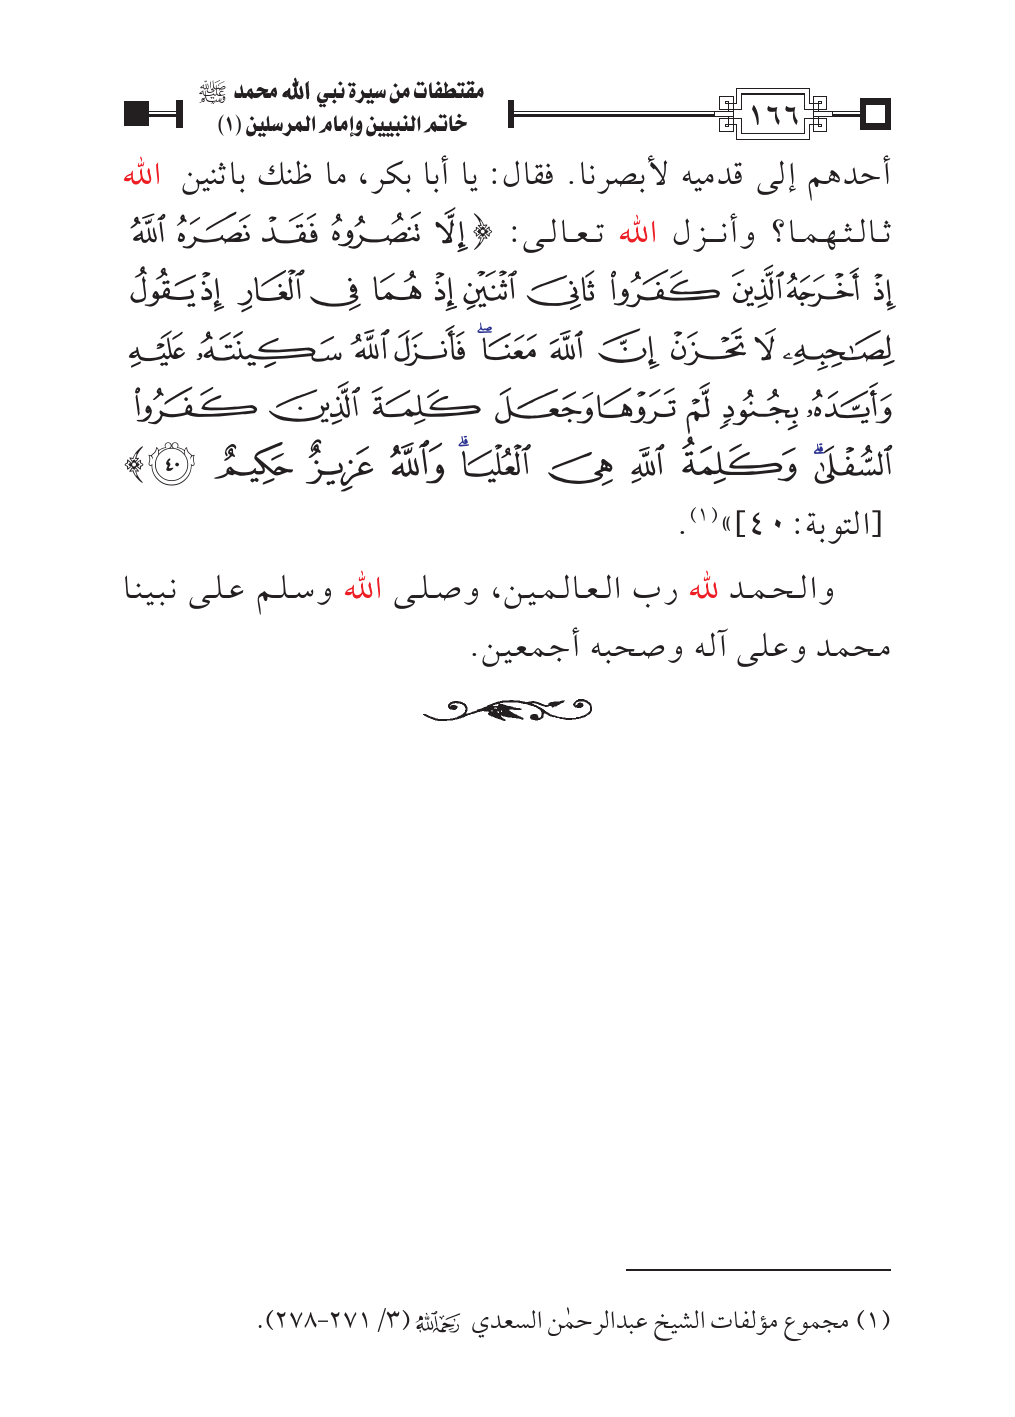 مقتطفات من سيرة نبي الله محمد ﷺ
خاتم النبيين وإمام المرسلين (١)
١٦٦
أحدهم إلى قدميه لأبصرنا. فقال: يا أبا بكر، ما ظنك باثنين الله
ثالثهما؟ وأنزل الله تعالى: ﴿إِلَّا تَنصُرُوهُ فَقَدْ نَصَرَهُ ٱللَّهُ
إِذْ أَخْرَجَهُ ٱلَّذِينَ كَفَرُوا۟ ثَانِىَ ٱثْنَيْنِ إِذْ هُمَا فِى ٱلْغَارِ إِذْ يَقُولُ
لِصَـٰحِبِهِۦ لَا تَحْزَنْ إِنَّ ٱللَّهَ مَعَنَا ۖ فَأَنزَلَ ٱللَّهُ سَكِينَتَهُۥ عَلَيْهِ
وَأَيَّدَهُۥ بِجُنُودٍ لَّمْ تَرَوْهَا وَجَعَلَ كَلِمَةَ ٱلَّذِينَ كَفَرُوا۟
ٱلسُّفْلَىٰ ۗ وَكَلِمَةُ ٱللَّهِ هِىَ ٱلْعُلْيَا ۗ وَٱللَّهُ عَزِيزٌ حَكِيمٌ ٤٠﴾
[التوبة: ٤٠]»(١).
والحمد لله رب العالمين، وصلى الله وسلم على نبينا
محمد وعلى آله وصحبه أجمعين.
(١) مجموع مؤلفات الشيخ عبدالرحمٰن السعدي رحمه الله (٣/ ٢٧١-٢٧٨).